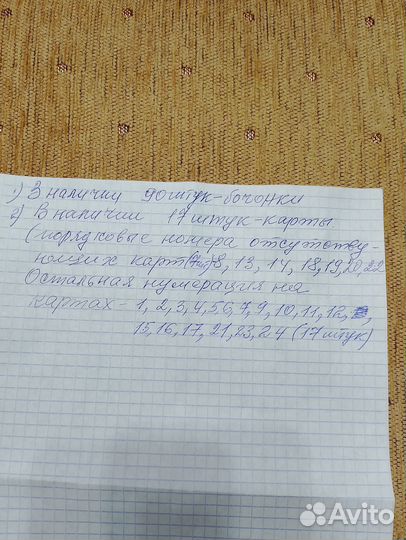 1) В наличии 90 штук-бочонки
2) В наличии 17 штук-карты.
(порядковые номера отсутству-
ющих карт (7шт) 8, 13, 14, 18, 19, 20, 22
Остальная нумерация на
картах - 1, 2, 3, 4, 5 6, 7, 9, 10, 11, 12, ,
15, 16, 17, 21, 23, 24 (17 штук)
Avito